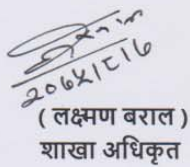 २०७५।८।६
( लक्ष्मण बराल )
शाखा अधिकृत